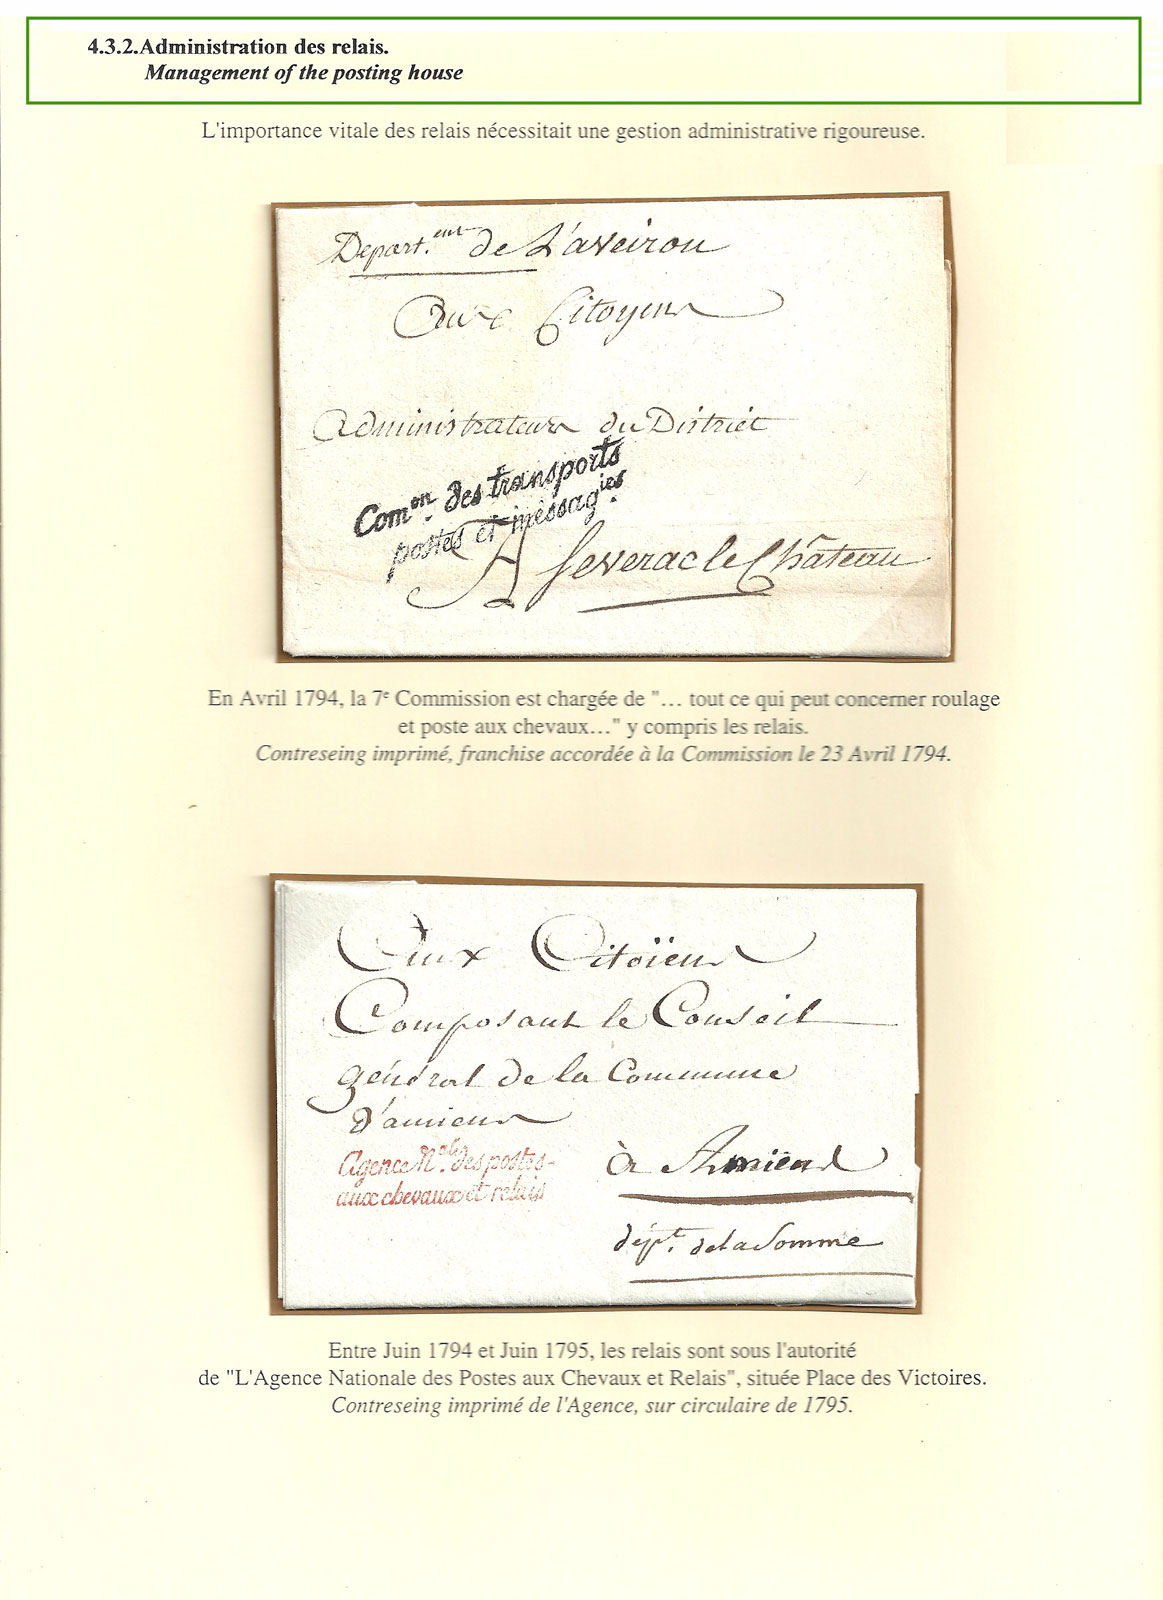 4.3.2.Administration des relais.
Management of the posting house
L'importance vitale des relais nécessitait une gestion administrative rigoureuse.
Départ.ent de L'aveirou
Aux Citoyens
Administrateurs du District
Comon. des transports
postes et messagies.
A Severac le Château
En Avril 1794, la 7e Commission est chargée de "... tout ce qui peut concerner roulage
et poste aux chevaux..." y compris les relais.
Contreseing imprimé, franchise accordée à la Commission le 23 Avril 1794.
Aux Citoïens
Composant le Conseil
général de la Commune
d'amiens
Agence Nale. des postes-
aux chevaux et relais
à Amiens
dépt. de la Somme
Entre Juin 1794 et Juin 1795, les relais sont sous l'autorité
de "L'Agence Nationale des Postes aux Chevaux et Relais", située Place des Victoires.
Contreseing imprimé de l'Agence, sur circulaire de 1795.